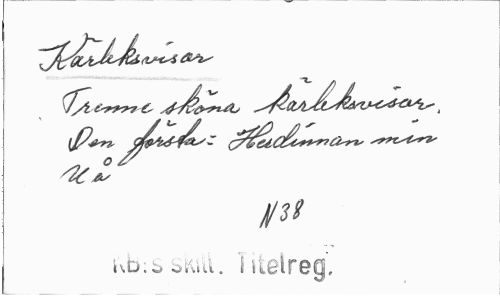 Kärleksvisor
Trenne sköna kärleksvisor.
Den första: Herdinnan min
U å
N 38
KB:s skill. Titelreg.